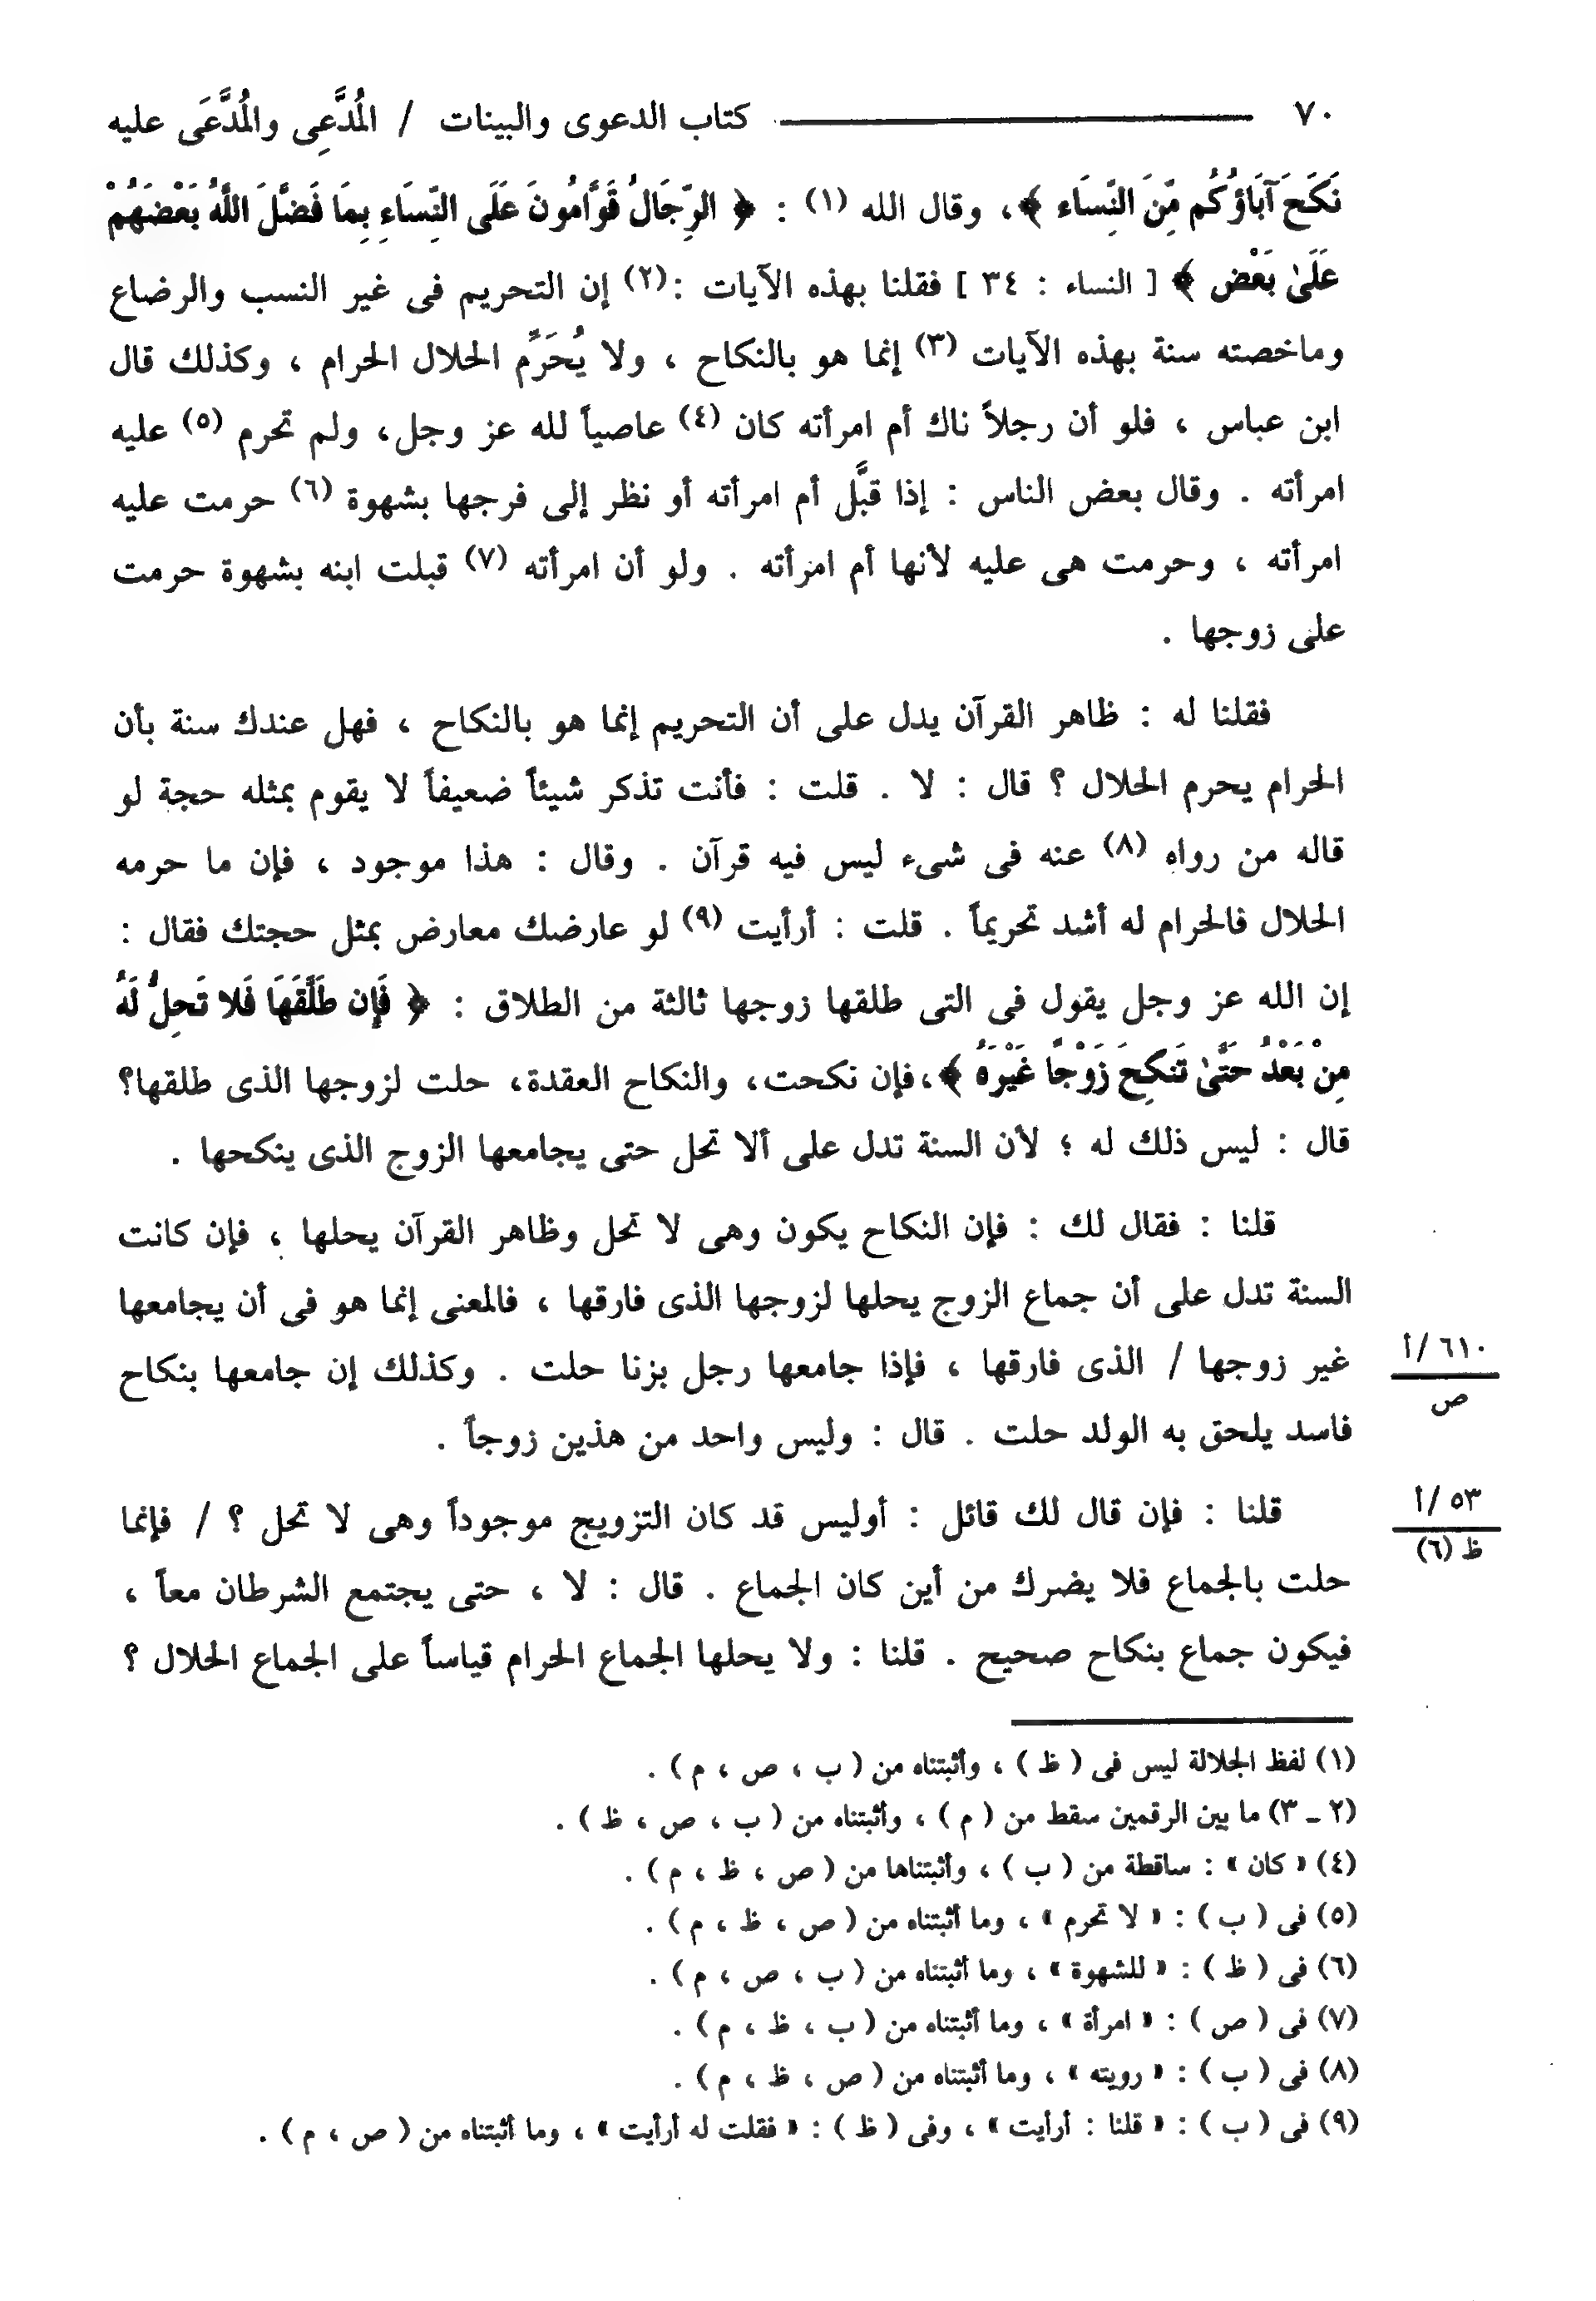 ٧٠ كتاب الدعوى والبينات / المُدَّعِى والمُدَّعَى عليه
نَكَحَ آبَاؤُكُم مِّنَ النِّسَاء ﴾، وقال الله (١) : ﴿ الرِّجَالُ قَوَّامُونَ عَلَى النِّسَاءِ بِمَا فَضَّلَ اللَّهُ بَعْضَهُمْ
عَلَىٰ بَعْضٍ ﴾ [ النساء : ٣٤ ] فقلنا بهذه الآيات :(٢) إن التحريم فى غير النسب والرضاع
وماخصته سنة بهذه الآيات (٣) إنما هو بالنكاح ، ولا يُحَرِّم الحلال الحرام ، وكذلك قال
ابن عباس ، فلو أن رجلاً ناك أم امرأته كان (٤) عاصياً لله عز وجل، ولم تحرم (٥) عليه
امرأته . وقال بعض الناس : إذا قبَّل أم امرأته أو نظر إلى فرجها بشهوة (٦) حرمت عليه
امرأته ، وحرمت هى عليه لأنها أم امرأته . ولو أن امرأته (٧) قبلت ابنه بشهوة حرمت
على زوجها .
فقلنا له : ظاهر القرآن يدل على أن التحريم إنما هو بالنكاح ، فهل عندك سنة بأن
الحرام يحرم الحلال ؟ قال : لا . قلت : فأنت تذكر شيئاً ضعيفاً لا يقوم بمثله حجة لو
قاله من رواه (٨) عنه فى شىء ليس فيه قرآن . وقال : هذا موجود ، فإن ما حرمه
الحلال فالحرام له أشد تحريماً . قلت : أرأيت (٩) لو عارضك معارض بمثل حجتك فقال :
إن الله عز وجل يقول فى التى طلقها زوجها ثالثة من الطلاق : ﴿ فَإِن طَلَّقَهَا فَلا تَحِلُّ لَهُ
مِنْ بَعْدُ حَتَّىٰ تَنكِحَ زَوْجًا غَيْرَهُ ﴾،فإن نكحت، والنكاح العقدة، حلت لزوجها الذى طلقها؟
قال : ليس ذلك له ؛ لأن السنة تدل على ألا تحل حتى يجامعها الزوج الذى ينكحها .
قلنا : فقال لك : فإن النكاح يكون وهى لا تحل وظاهر القرآن يحلها ، فإن كانت
السنة تدل على أن جماع الزوج يحلها لزوجها الذى فارقها ، فالمعنى إنما هو فى أن يجامعها
غير زوجها / الذى فارقها ، فإذا جامعها رجل بزنا حلت . وكذلك إن جامعها بنكاح
٦١٠ /أ
ص
فاسد يلحق به الولد حلت . قال : وليس واحد من هذين زوجاً .
قلنا : فإن قال لك قائل : أوليس قد كان التزويج موجوداً وهى لا تحل ؟ / فإنما
٥٣ /أ
ظ (٦)
حلت بالجماع فلا يضرك من أين كان الجماع . قال : لا ، حتى يجتمع الشرطان معاً ،
فيكون جماع بنكاح صحيح . قلنا : ولا يحلها الجماع الحرام قياساً على الجماع الحلال ؟
(١) لفظ الجلالة ليس فى ( ظ ) ، وأثبتناه من ( ب ، ص ، م ) .
(٢ ـ ٣) ما بين الرقمين سقط من ( م ) ، وأثبتناه من ( ب ، ص ، ظ ) .
(٤) « كان » : ساقطة من ( ب ) ، وأثبتناها من ( ص ، ظ ، م ) .
(٥) فى ( ب ) : « لا تحرم » ، وما أثبتناه من ( ص ، ظ ، م ) .
(٦) فى ( ظ ) : « للشهوة » ، وما أثبتناه من ( ب ، ص ، م ) .
(٧) فى ( ص ) : « امرأة » ، وما أثبتناه من ( ب ، ظ ، م ) .
(٨) فى ( ب ) : « رويته » ، وما أثبتناه من ( ص ، ظ ، م ) .
(٩) فى ( ب ) : « قلنا : أرأيت » ، وفى ( ظ ) : « فقلت له أرأيت » ، وما أثبتناه من ( ص ، م ) .